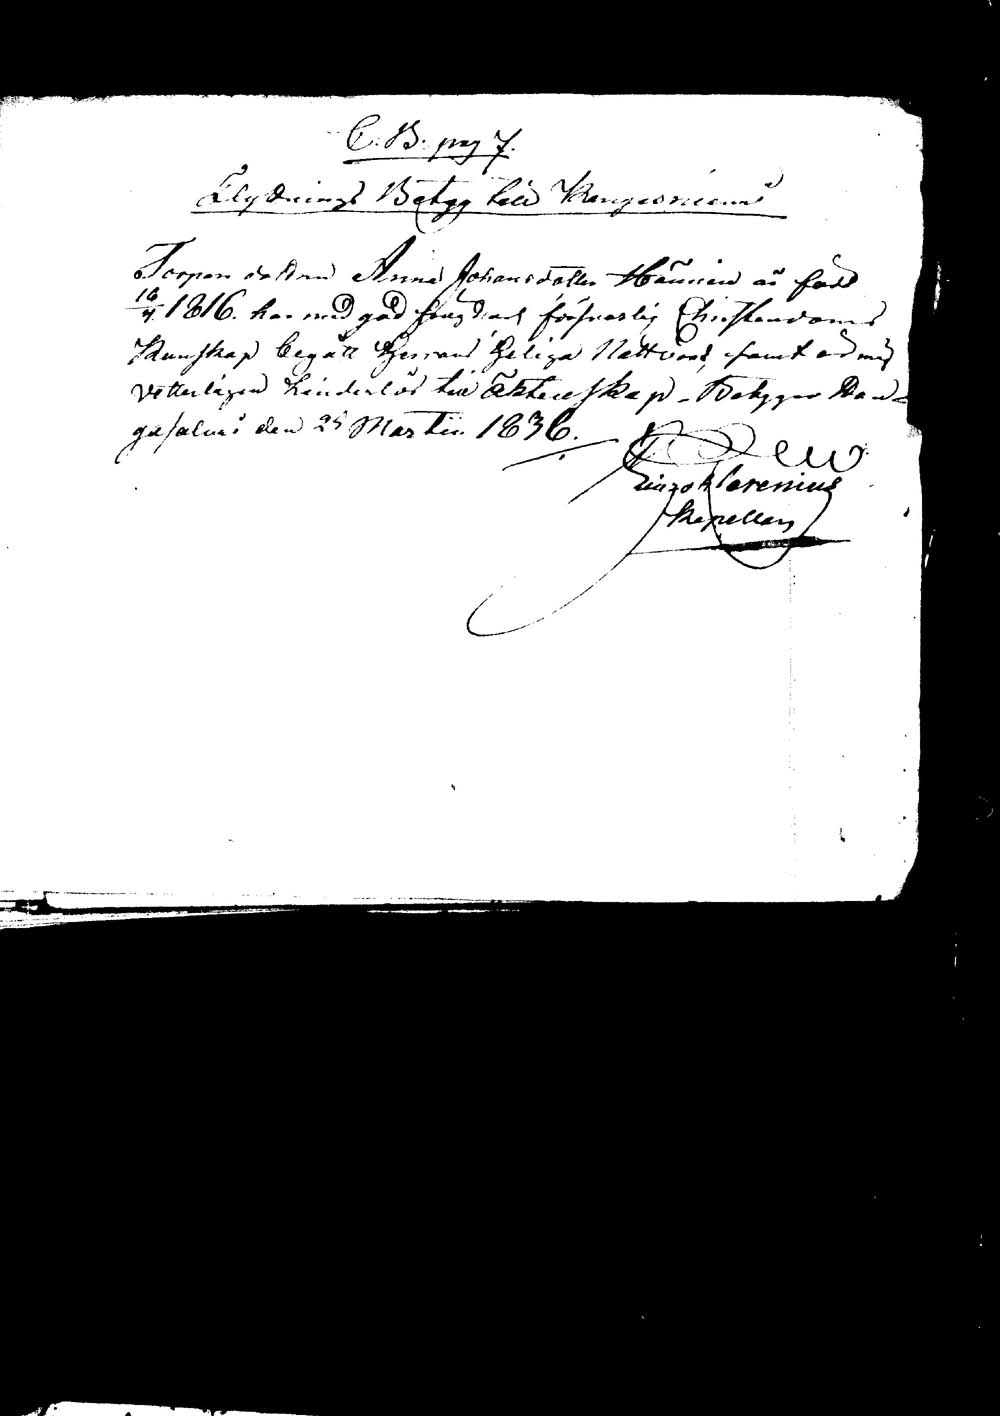 C. B. pag 7.
Flyttnings Betyg till Kangasniemi
Torpare dottren Anna Johansdotter Hänninen är född
16/4 1816. har med god försvarlig Christendoms
Kunskap begått Herrans Heliga Nattvard, samt är mig
vetterligen hinderlös till Äktenskap. Betygar Kan-
gasalmi den 25 Martii 1836.
Clerenius
Kapellan